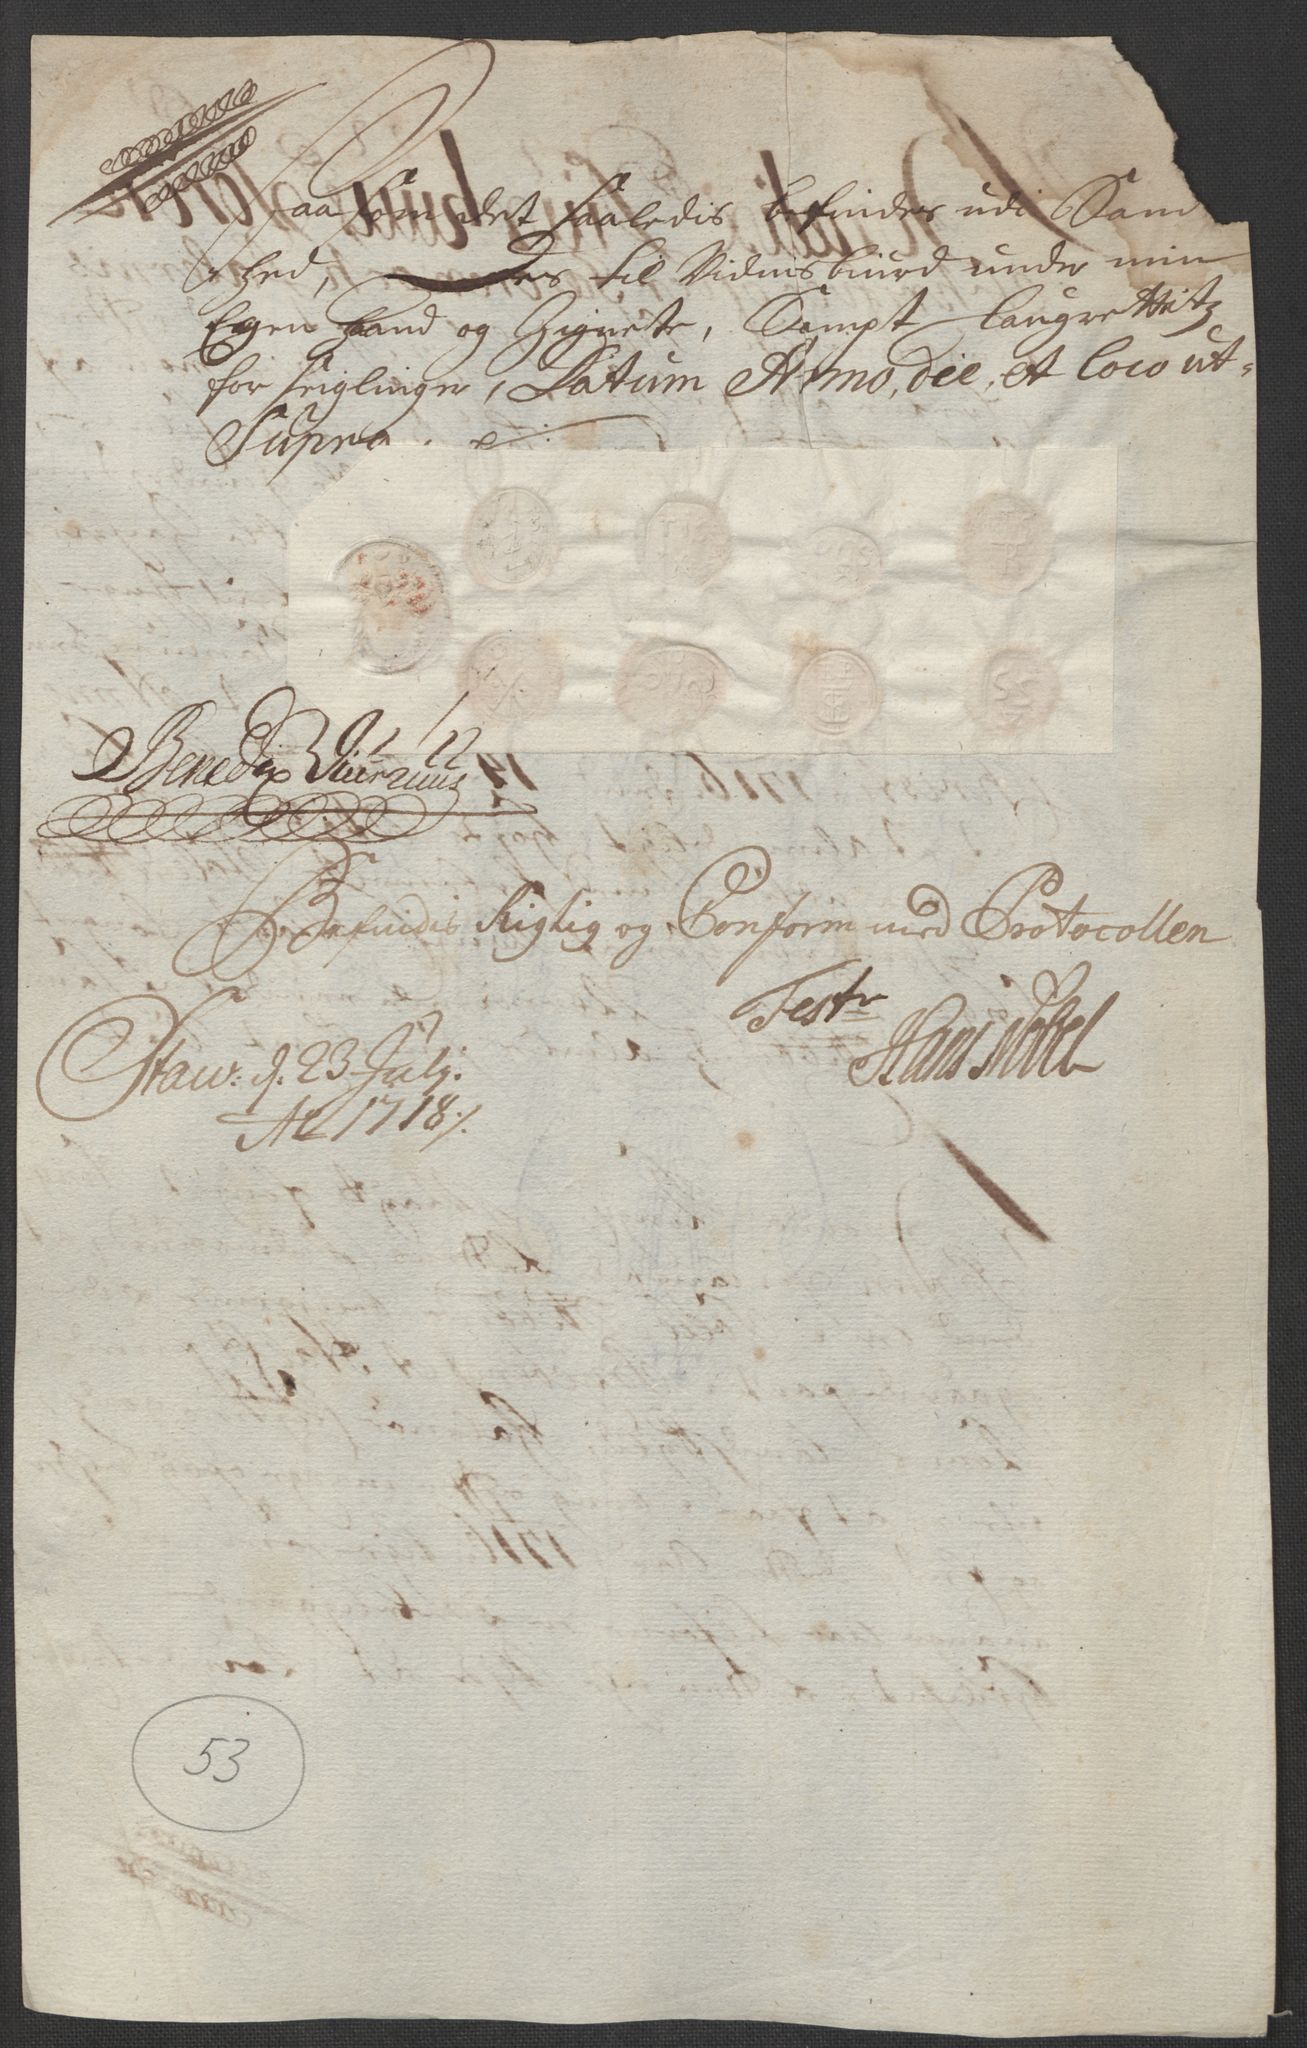 Saasom det saaledis befindes udi Sand
hed, til Vidnisbiurd under min
Egen Haand og Zignete, Sampt Laugrettitz
for seiglinger, Datum Anno, die, et loco ut-
Supra.
Benedix
Befindis Rigtig og Conform med Protocollen
Teste
Hans Nobel
Staw: d. 23 Julj.
Ao 1718 /.
53